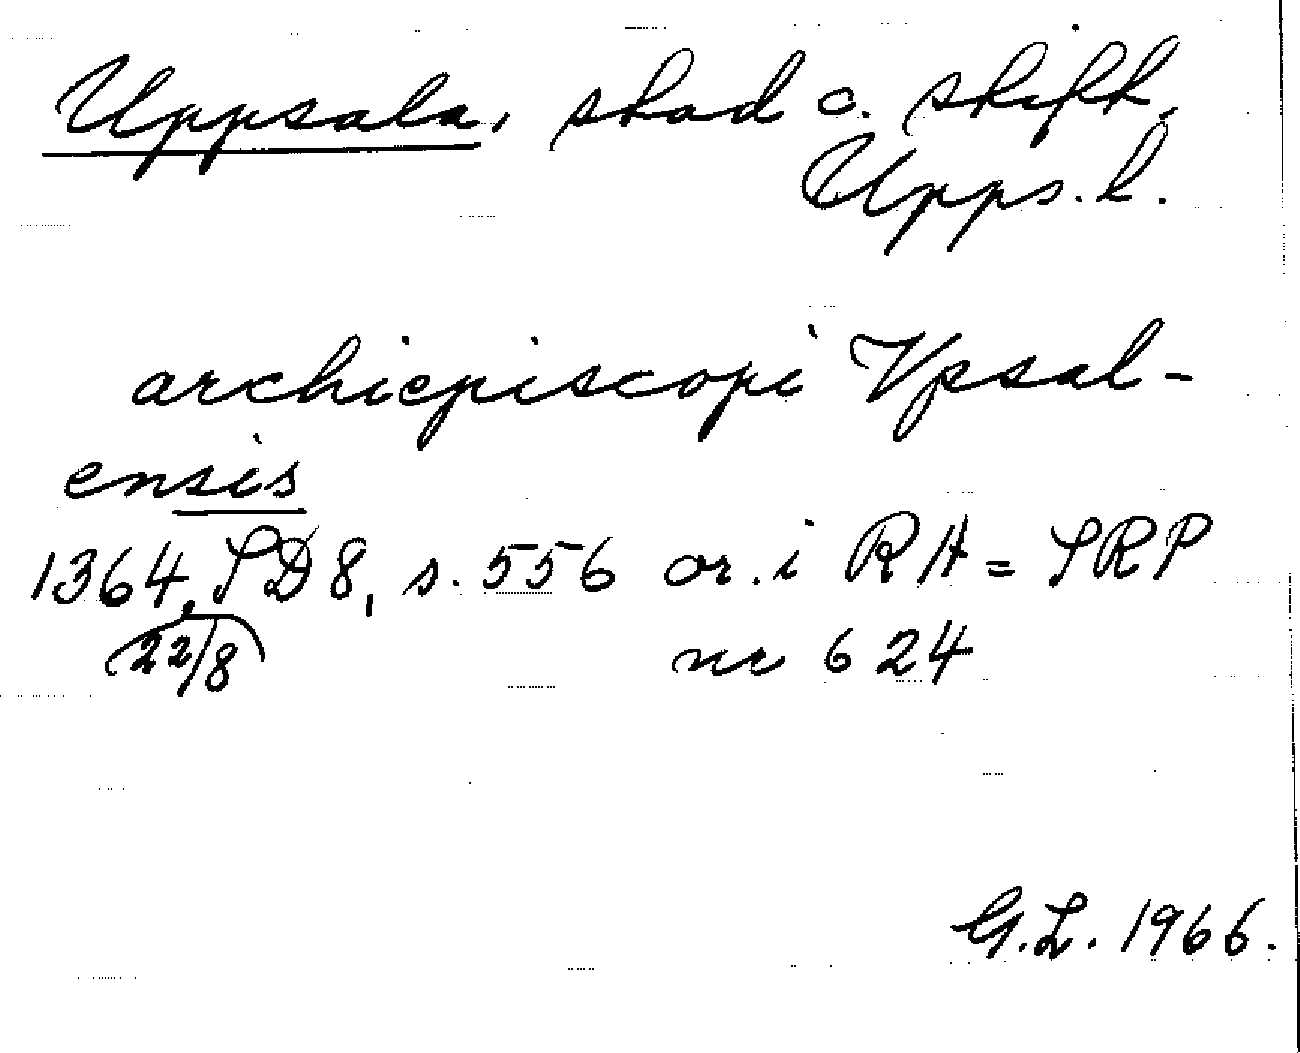 Uppsala, stad o. stift,
Upps. l.
archiepiscopi Vpsal-
ensis
1364, SD 8, s. 556 or. i RA = SRP
22/8 nr 624
G.L. 1966.